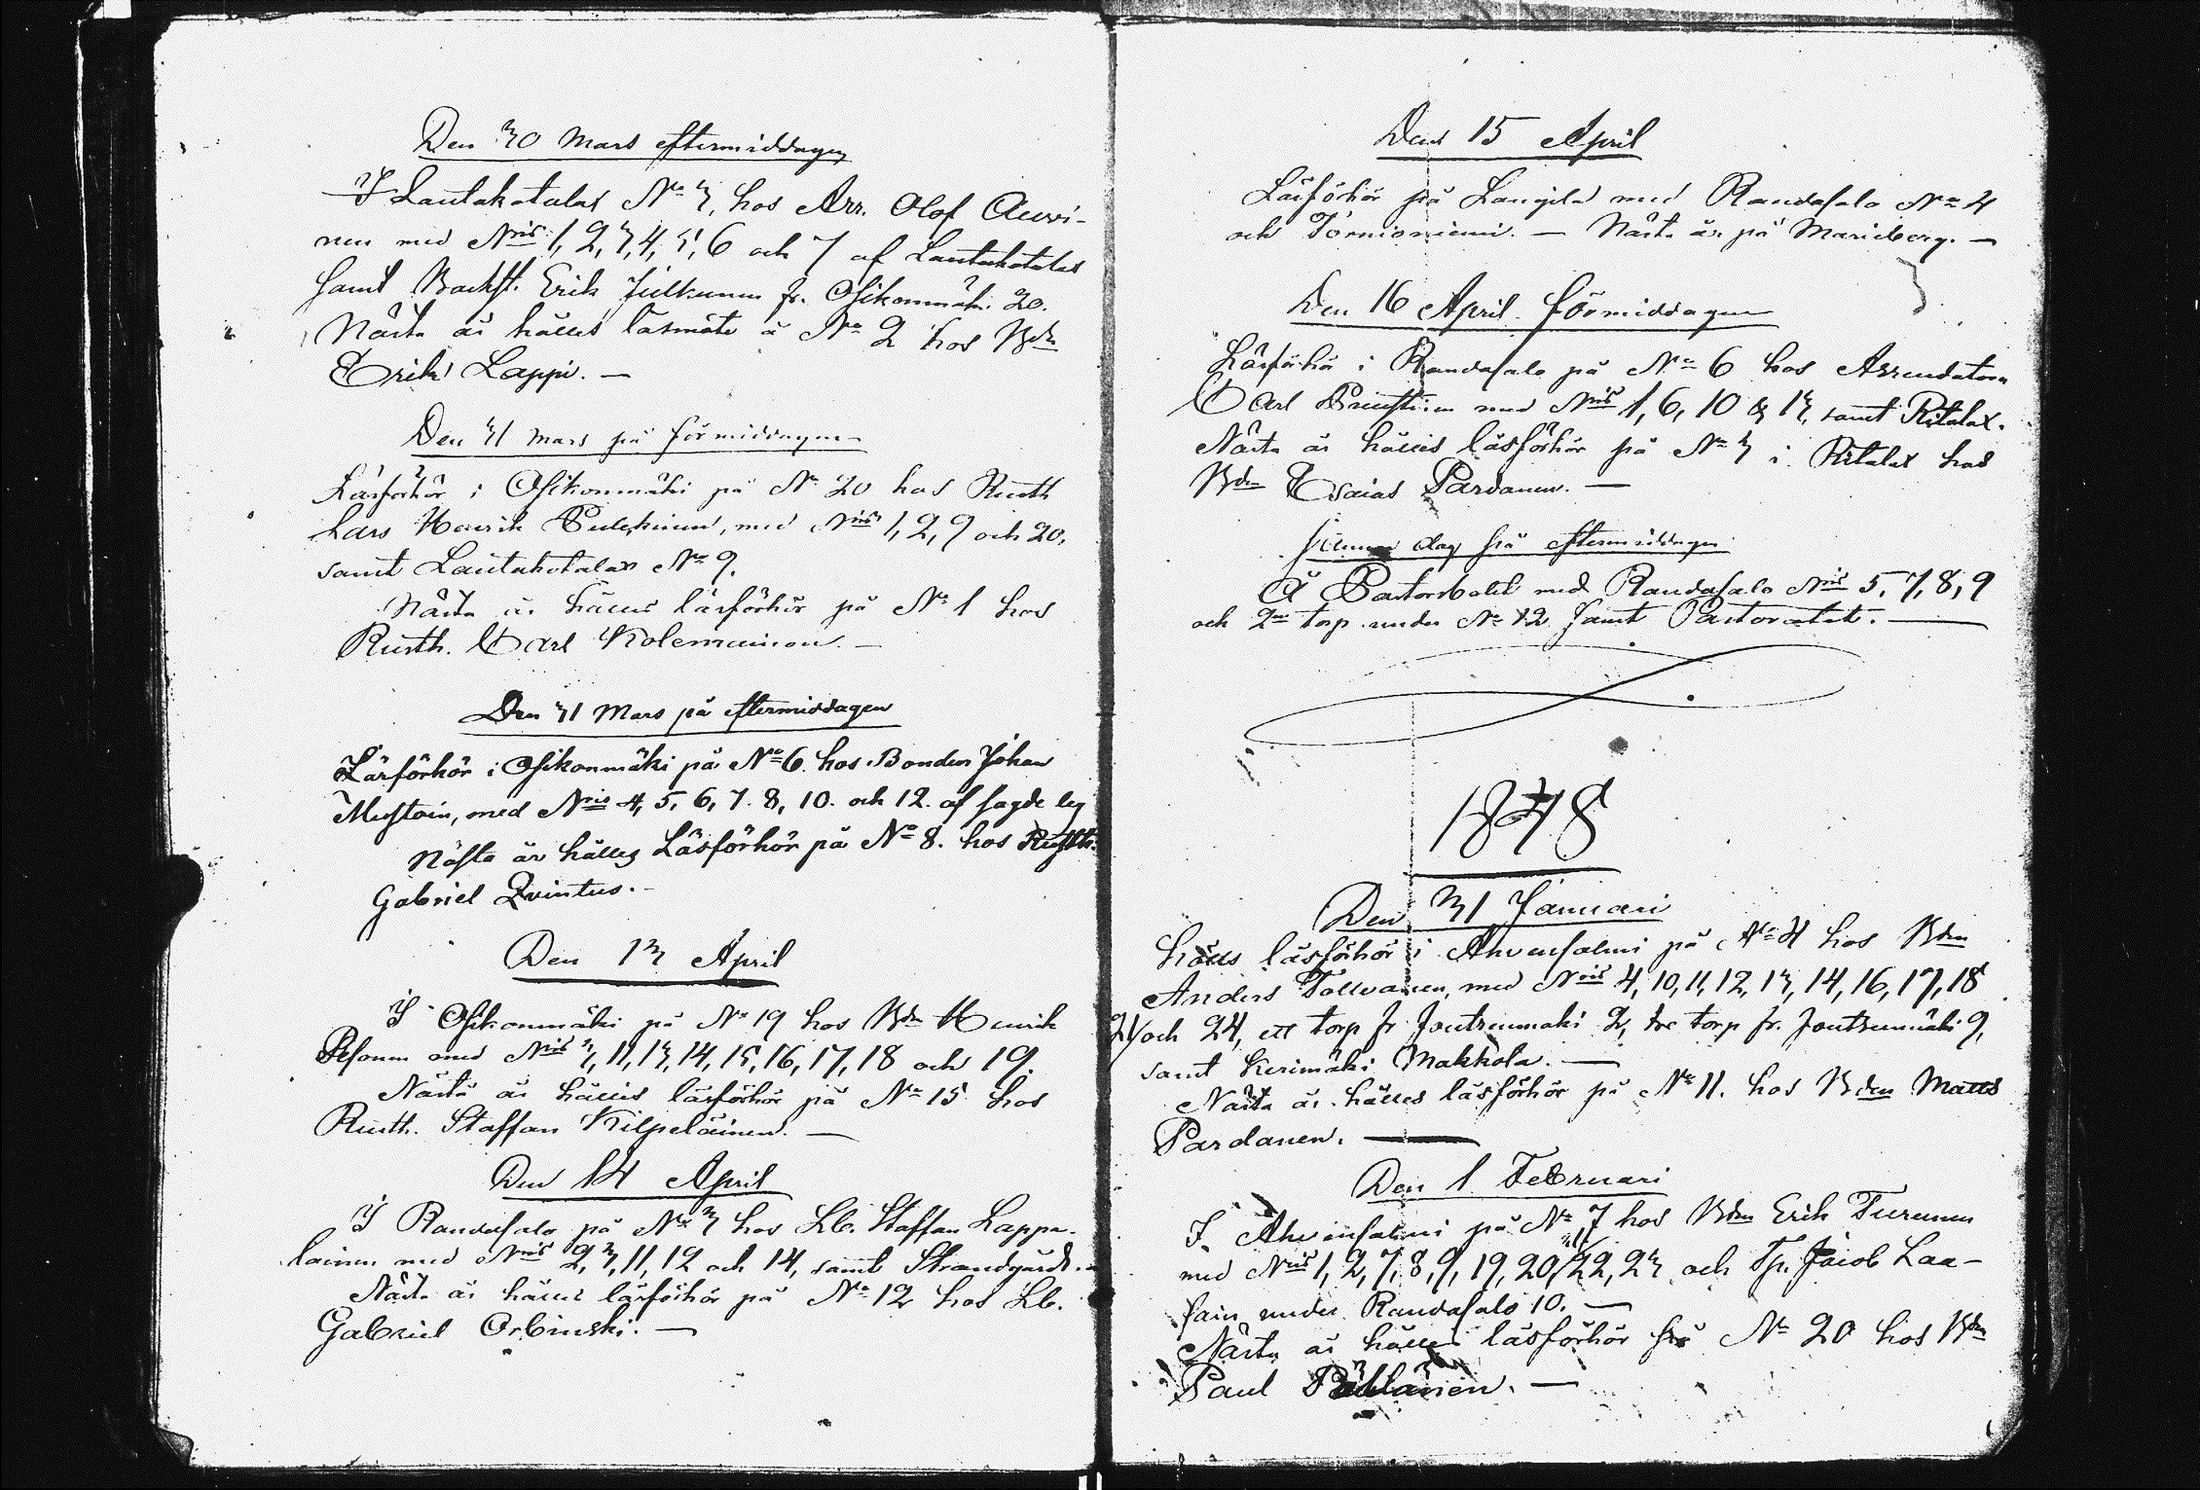 Den 30 Mars eftermiddagen
I Lautakotalax No 3, hos Arr. Olof Auvi-
nen med Nris 1, 2, 3, 4, 5, 6 och 7 af Lautakotalax
samt Backst. Erik Julkunen fr. Osikonmäki 20.
Nästa år hålles läsmöte å No 2 hos Bdn
Erik Lappi. —
Den 31 Mars på förmiddagen
Läsförhör i Osikonmäki på No 20 hos Rusth
Lars Henrik Pulkkinen, med Nris 1, 2, 9 och 20,
samt Lautakotalax No 9.
Nästa år hålles läsförhör på No 1 hos
Rusth. Carl Kolemainen. —
Den 31 Mars på eftermiddagen
Läsförhör i Osikonmäki på No 6. hos Bonden Johan
Mustoin, med Nris 4, 5, 6, 7. 8, 10. och 12. af sagde by
Nästa år hålles Läsförhör på No 8. hos Rusth.
Gabriel Qvintus. —
Den 13 April
I Osikonmäki på No 19 hos Bdn Henrik
Pesonen med Nris 3, 11, 13, 14, 15, 16, 17, 18 och 19.
Nästa år hålles läsförhör på No 15 hos
Rusth. Staffan Kilpeläinen. —
Den 14 April
I Randasalo på No 3 hos Lb. Staffan Lappa-
lainen med Nris 2, 3, 11, 12 och 14, samt Strandgård.
Nästa år hålles läsförhör på No 12 hos Lb.
Gabriel Orbinski. —
Den 15 April
Läsförhör på Langila med Randasalo No 4
och Törnioniemi. — Nästa år på Marieberg. —
Den 16 April förmiddagen
Läsförhör i Randasalo på No 6 hos Arrendatorn
Carl med Nris 1, 6, 10 & 13, samt Ritalax.
Nästa år hålles läsförhör på No 3 i Ritalax hos
Bdn Esaias Pardanen. —
samma dag på eftermiddagen
Å Pastorsbolet med Randasalo Nris 5, 7, 8, 9
och 2ne torp under No 12 samt Pastoratet. —
1848
Den 31 Januari
hölls läsförhör i Ahvensalmi på No 4 hos Bdn
Anders Tolvanen, med Nris 4, 10, 11, 12, 13, 14, 16, 17, 18
21 och 24, ett torp fr. Joutsenmäki 2, tre torp fr. Joutsenmäki 9,
samt Kerimäki Makkola. —
Nästa år hålles läsförhör på No 11. hos Bden Matts
Pardanen. —
Den 1 Februari
I Ahvensalmi på No 7 hos Bdn Erik Turunen
med Nris 1, 2, 7, 8, 9, 19, 20, 22, 23 och Tp. Jacob Laa-
sain under Randasalo 10. —
Nästa år hålles läsförhör på No 20 hos Bdn
Paul —